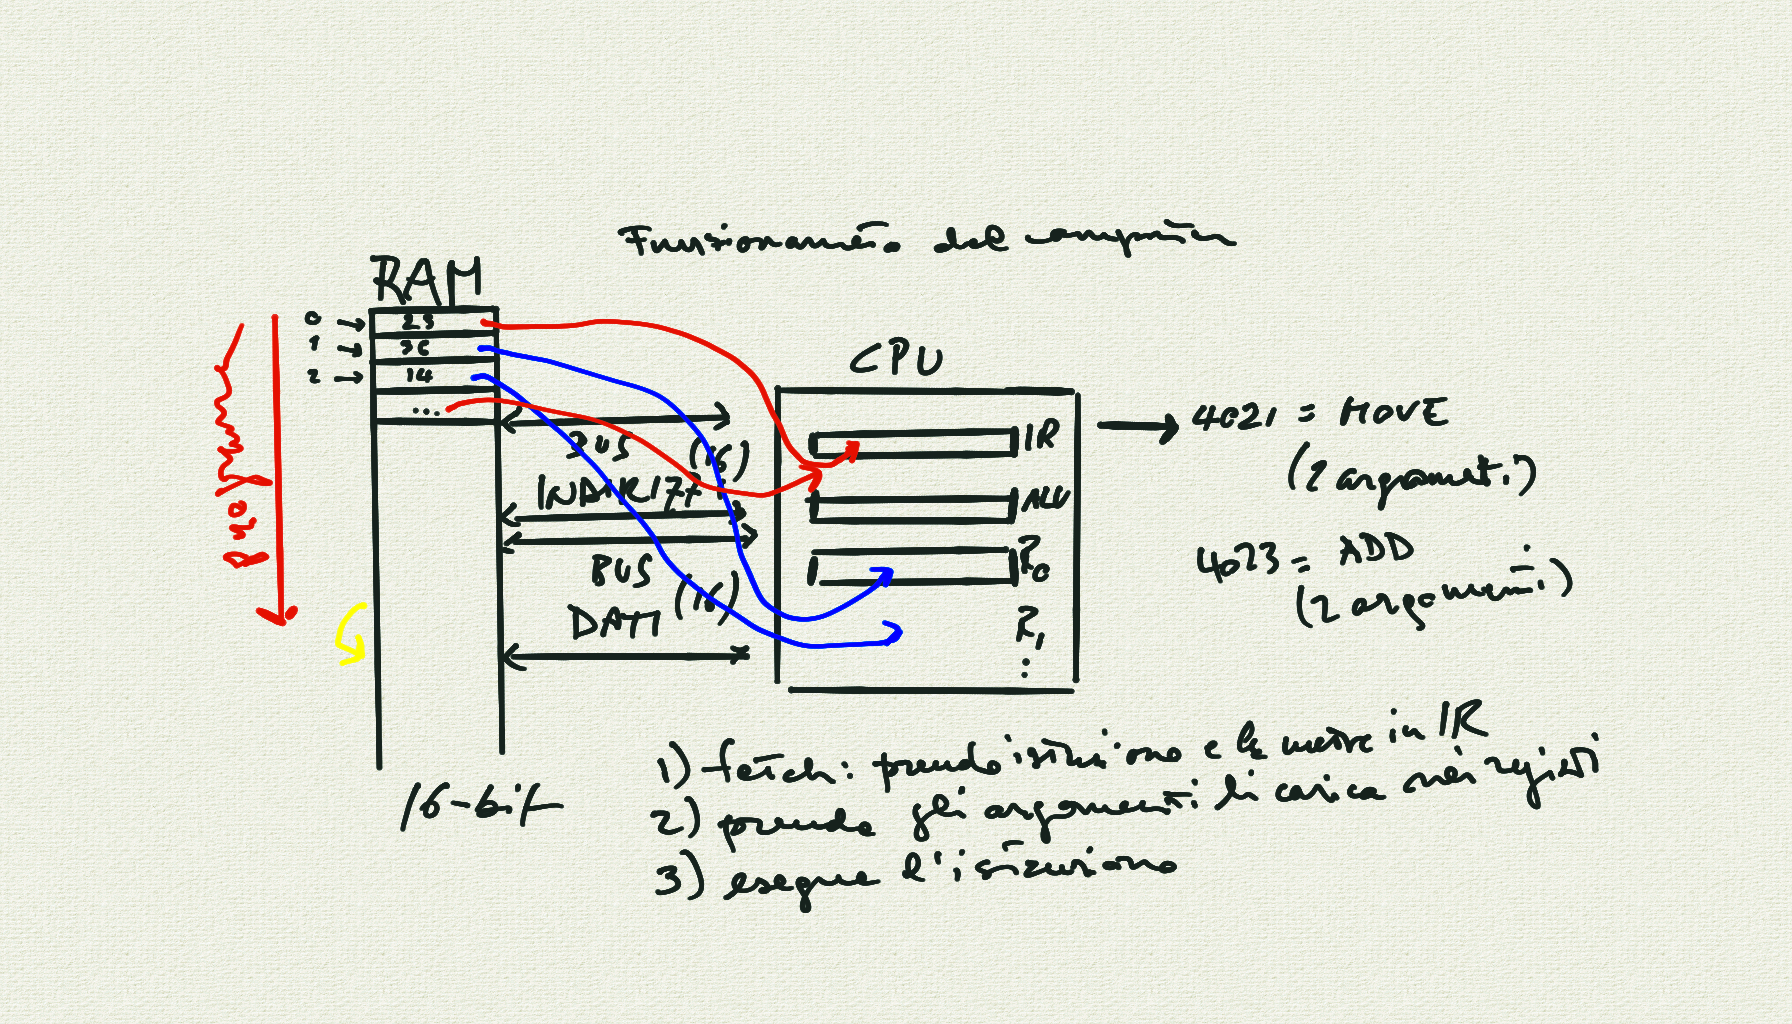 Funzionamento del computer
RAM
0
23
1
36
2
14
...
CPU
BUS (16)
INDIRIZZI
BUS (16)
DATI
IR
ALU
R0
R1
:
4021 = MOVE
(2 argomenti)
4023 = ADD
(2 argomenti)
16-bit
1) fetch: prende istruzione e la mette in IR
2) prende gli argomenti li carica nei registri
3) esegue l'istruzione